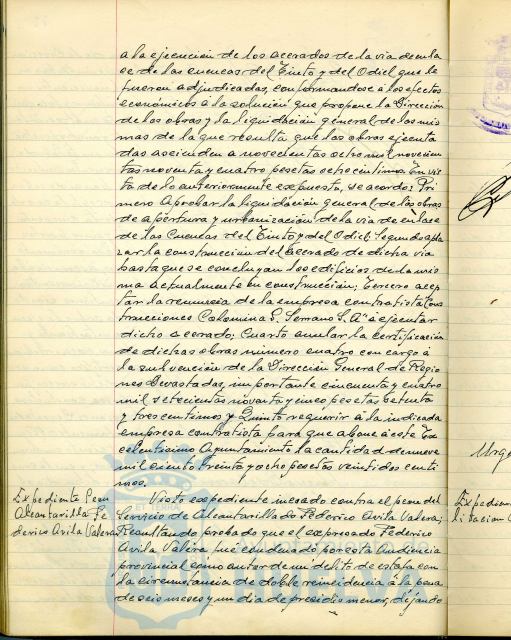 a la ejecución de los acerados de la via de enla
ce de las cuencas del Tinto y del Odiel que le
fueron adjudicadas, conformandose a los efectos
económicos á la solución que propone la Dirección
de las obras y la liquidación general de las mis
mas de la que resulta que las obras ejecuta
das ascienden a novecientas ocho mil novecien
tas noventa y cuatro pesetas ocho centimos. En vis
ta de lo anteriormente expuesto, se acordo: Pri
mero Aprobar la liquidación general de las obras
de apertura y urbanización de la via de enlace
de las Cuencas del Tinto y del Odiel: Segundo apla
zar la construcción del acerado de dicha via
hasta que se concluyan los edificios de la mis
ma actualmente en construcción; Tercero acep
tar la renuncia de la empresa contratista Cons
trucciones Colomina G. Serrano S. Aª. a ejecutar
dicho acerado; Cuarto anular la certificación
de dichas obras número cuatro con cargo á
la subvención de la Dirección General de Regio
nes Devastadas, importante cincuenta y cuatro
mil setecientas noventa y cinco pesetas setenta
y tres centimos y Quinto requerir á la indicada
empresa contratista para que abone á este Ex
celentisimo Ayuntamiento la cantidad de nueve
mil ciento treinta y ocho pesetas veintidos centi
mos.
Expediente Peon
Alcantarilla Fe
derico Avila Valera
Visto expediente incoado contra el peon del
Servicio de Alcantarillado Federico Avila Valera;
Resultando probado que el expresado Federico
Avila Valera fué condenado por esta Audiencia
provincial como autor de un delito de estafa con
la circunstancia de doble reincidencia á la pena
de seis meses y un dia de presidio menor, dejando
Urge
Expedien